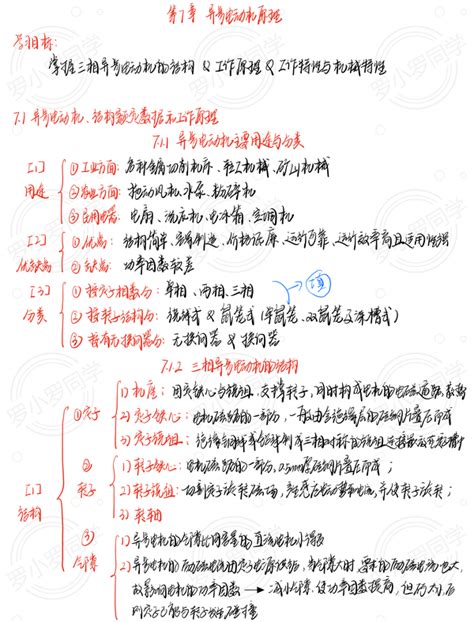 第7章 异步电动机原理
学习目标:
掌握三相异步电动机的结构 & 工作原理 & 工作特性与机械特性
7.1 异步电动机、结构额定数据和工作原理
7.1.1 异步电动机主要用途与分类
[1] 用途
① 工业方面: 各种金属切削机床、轻工机械、矿山机械
② 农业方面: 拖动风机、水泵、粉碎机
③ 民用电器: 电扇、洗衣机、电冰箱、空调机
[2] 优缺点
① 优点: 结构简单、容易制造、价格低廉、运行可靠、运行效率高且适用性强
② 缺点: 功率因数较差
[3] 分类
① 按定子相数分: 单相、两相、三相
② 按转子结构分: 绕线式 & 鼠笼式 (单鼠笼、双鼠笼及深槽式)
③ 按有无换向器分: 无换向器 & 换向器
7.1.2 三相异步电动机的结构
[1] 结构
① 定子
1) 机座: 固定铁心与绕组、支撑转子, 同时构成电机的电磁通路
2) 定子铁心: 电机磁路的一部分, 一般由含绝缘层的硅钢片叠压而成
3) 定子绕组:
② 转子
1) 转子铁心: 电机磁路的一部分, 0.5mm厚硅钢片叠压而成;
2) 转子绕组: 切割定子旋转磁场, 产生感应电动势和电流, 并使转子旋转;
3) 转轴
③ 气隙
1) 异步电机的气隙比同容量的直流电机小得多
2) 异步电机的励磁电流由定子电源供给, 气隙大时, 要求的励磁电流也大,
故影响电机的功率因数 → 减小气隙, 使功率因数提高, 但
则定子可能与转子发生碰撞